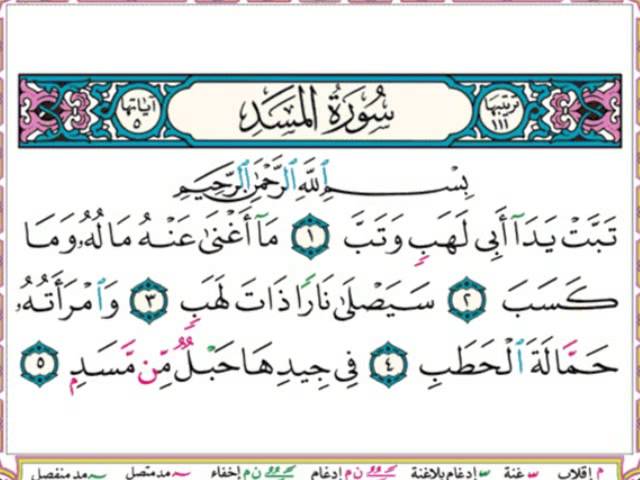 ترتيبها ١١١ سُورَةُ المَسَدِ آياتها ٥
بِسْمِ ٱللَّهِ ٱلرَّحْمَٰنِ ٱلرَّحِيمِ
تَبَّتْ يَدَآ أَبِى لَهَبٍ وَتَبَّ ١ مَآ أَغْنَىٰ عَنْهُ مَالُهُۥ وَمَا
كَسَبَ ٢ سَيَصْلَىٰ نَارًا ذَاتَ لَهَبٍ ٣ وَٱمْرَأَتُهُۥ
حَمَّالَةَ ٱلْحَطَبِ ٤ فِى جِيدِهَا حَبْلٌ مِّن مَّسَدٍ ٥
م إقلاب غنة إدغام بلاغنة ن م إدغام ن م إخفاء مد متصل مد منفصل